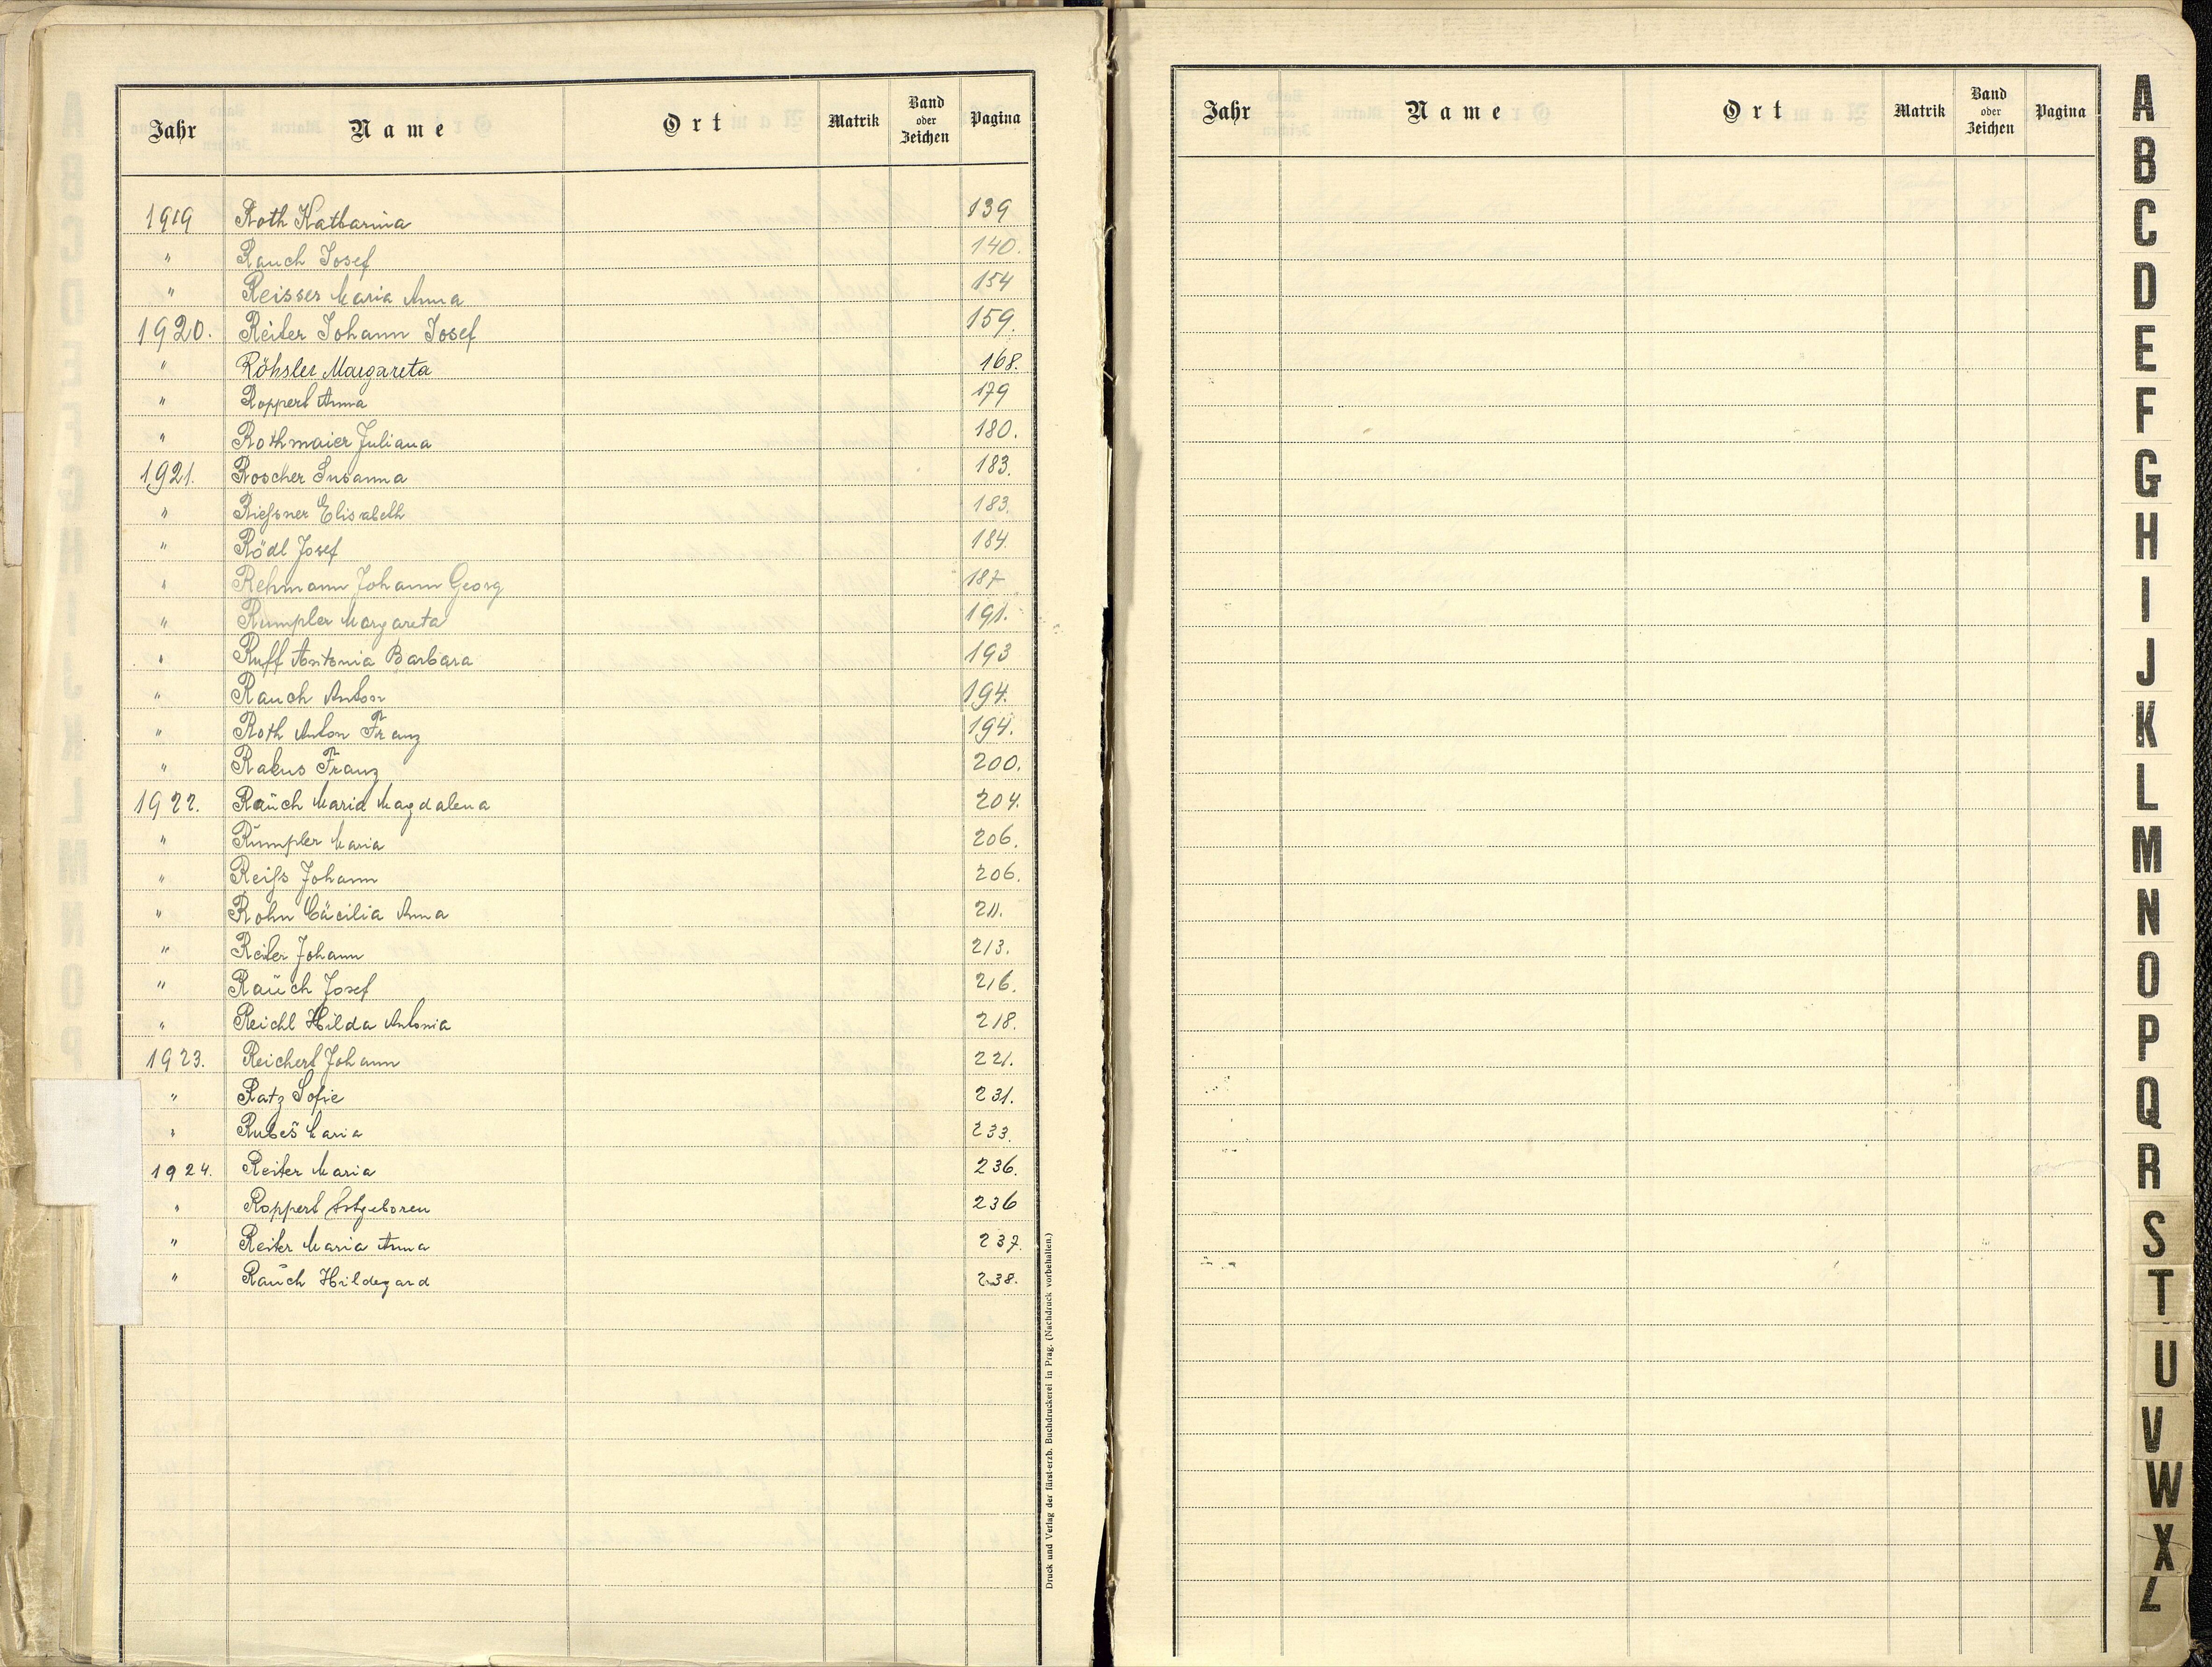 Jahr Name Ort Matrik Band oder Zeichen Pagina
1919 Roth Katharina 139
" Rauch Josef 140.
" Reisser Maria Anna 154
1920. Reiter Johann Josef 159.
" Röhsler Margareta 168.
" Roppert Anna 179
" Rothmaier Juliana 180.
1921. Roscher Susanna 183.
" Rießner Elisabeth 183.
" Rödl Josef 184.
" Rehmann Johann Georg 187
" Rumpler Margareta 191.
" Ruff Antonia Barbara 193
" Rauch Anton 194.
" Roth Anton Franz 194.
" Rakus Franz 200.
1922. Rauch Maria Magdalena 204.
" Rumpler Maria 206.
" Reiß Johann 206.
" Rohn Cäcilia Anna 211.
" Reiter Johann 213.
" Rauch Josef 216.
" Reichl Hilda Antonia 218.
1923. Reichert Johann 221.
" Ratz Sofie 231.
" Rubeš Maria 233.
1924. Reiter Maria 236.
" Roppert 236
" Reiter Maria Anna 237.
" Rauch Hildegard 238.
Druck und Verlag der fürst-erzb. Buchdruckerei in Prag. (Nachdruck vorbehalten.)
Jahr Name Ort Matrik Band oder Zeichen Pagina
A
B
C
D
E
F
G
H
I
J
K
L
M
N
O
P
Q
R
S
T
U
V
W
X
Z